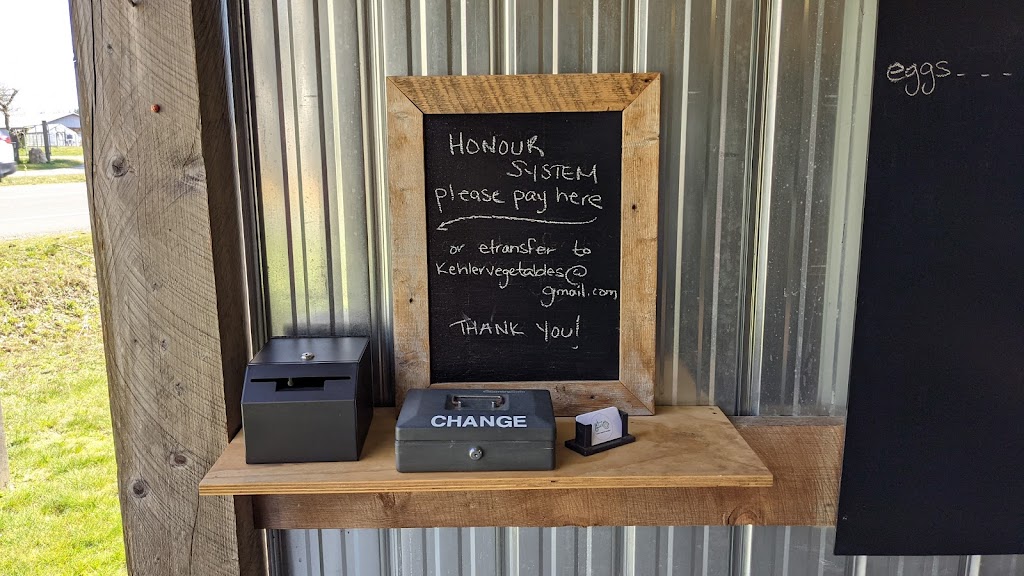 HONOUR
SYSTEM
please pay here
or etransfer to
Kehlervegetables@
gmail.com
THANK YOU!
CHANGE
eggs----